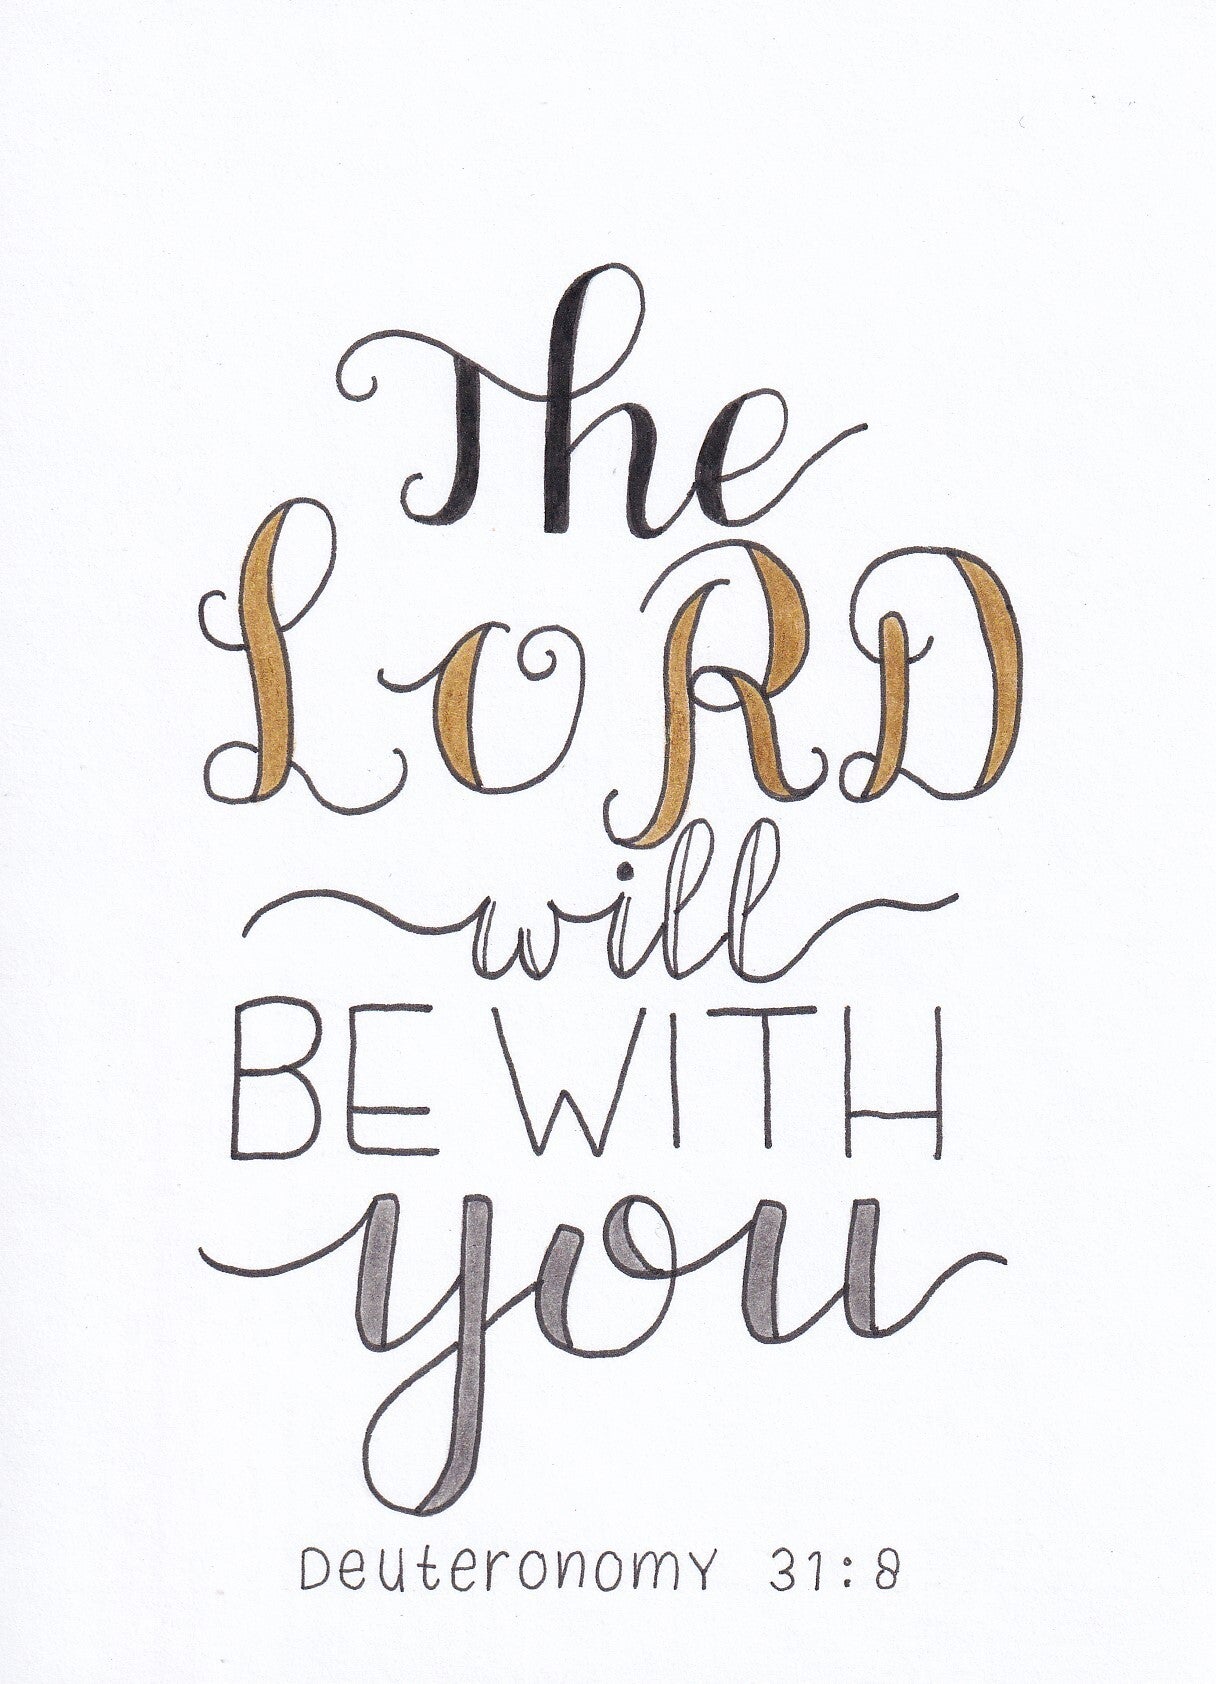 The
LORD
will
BE WITH
you
Deuteronomy 31:8